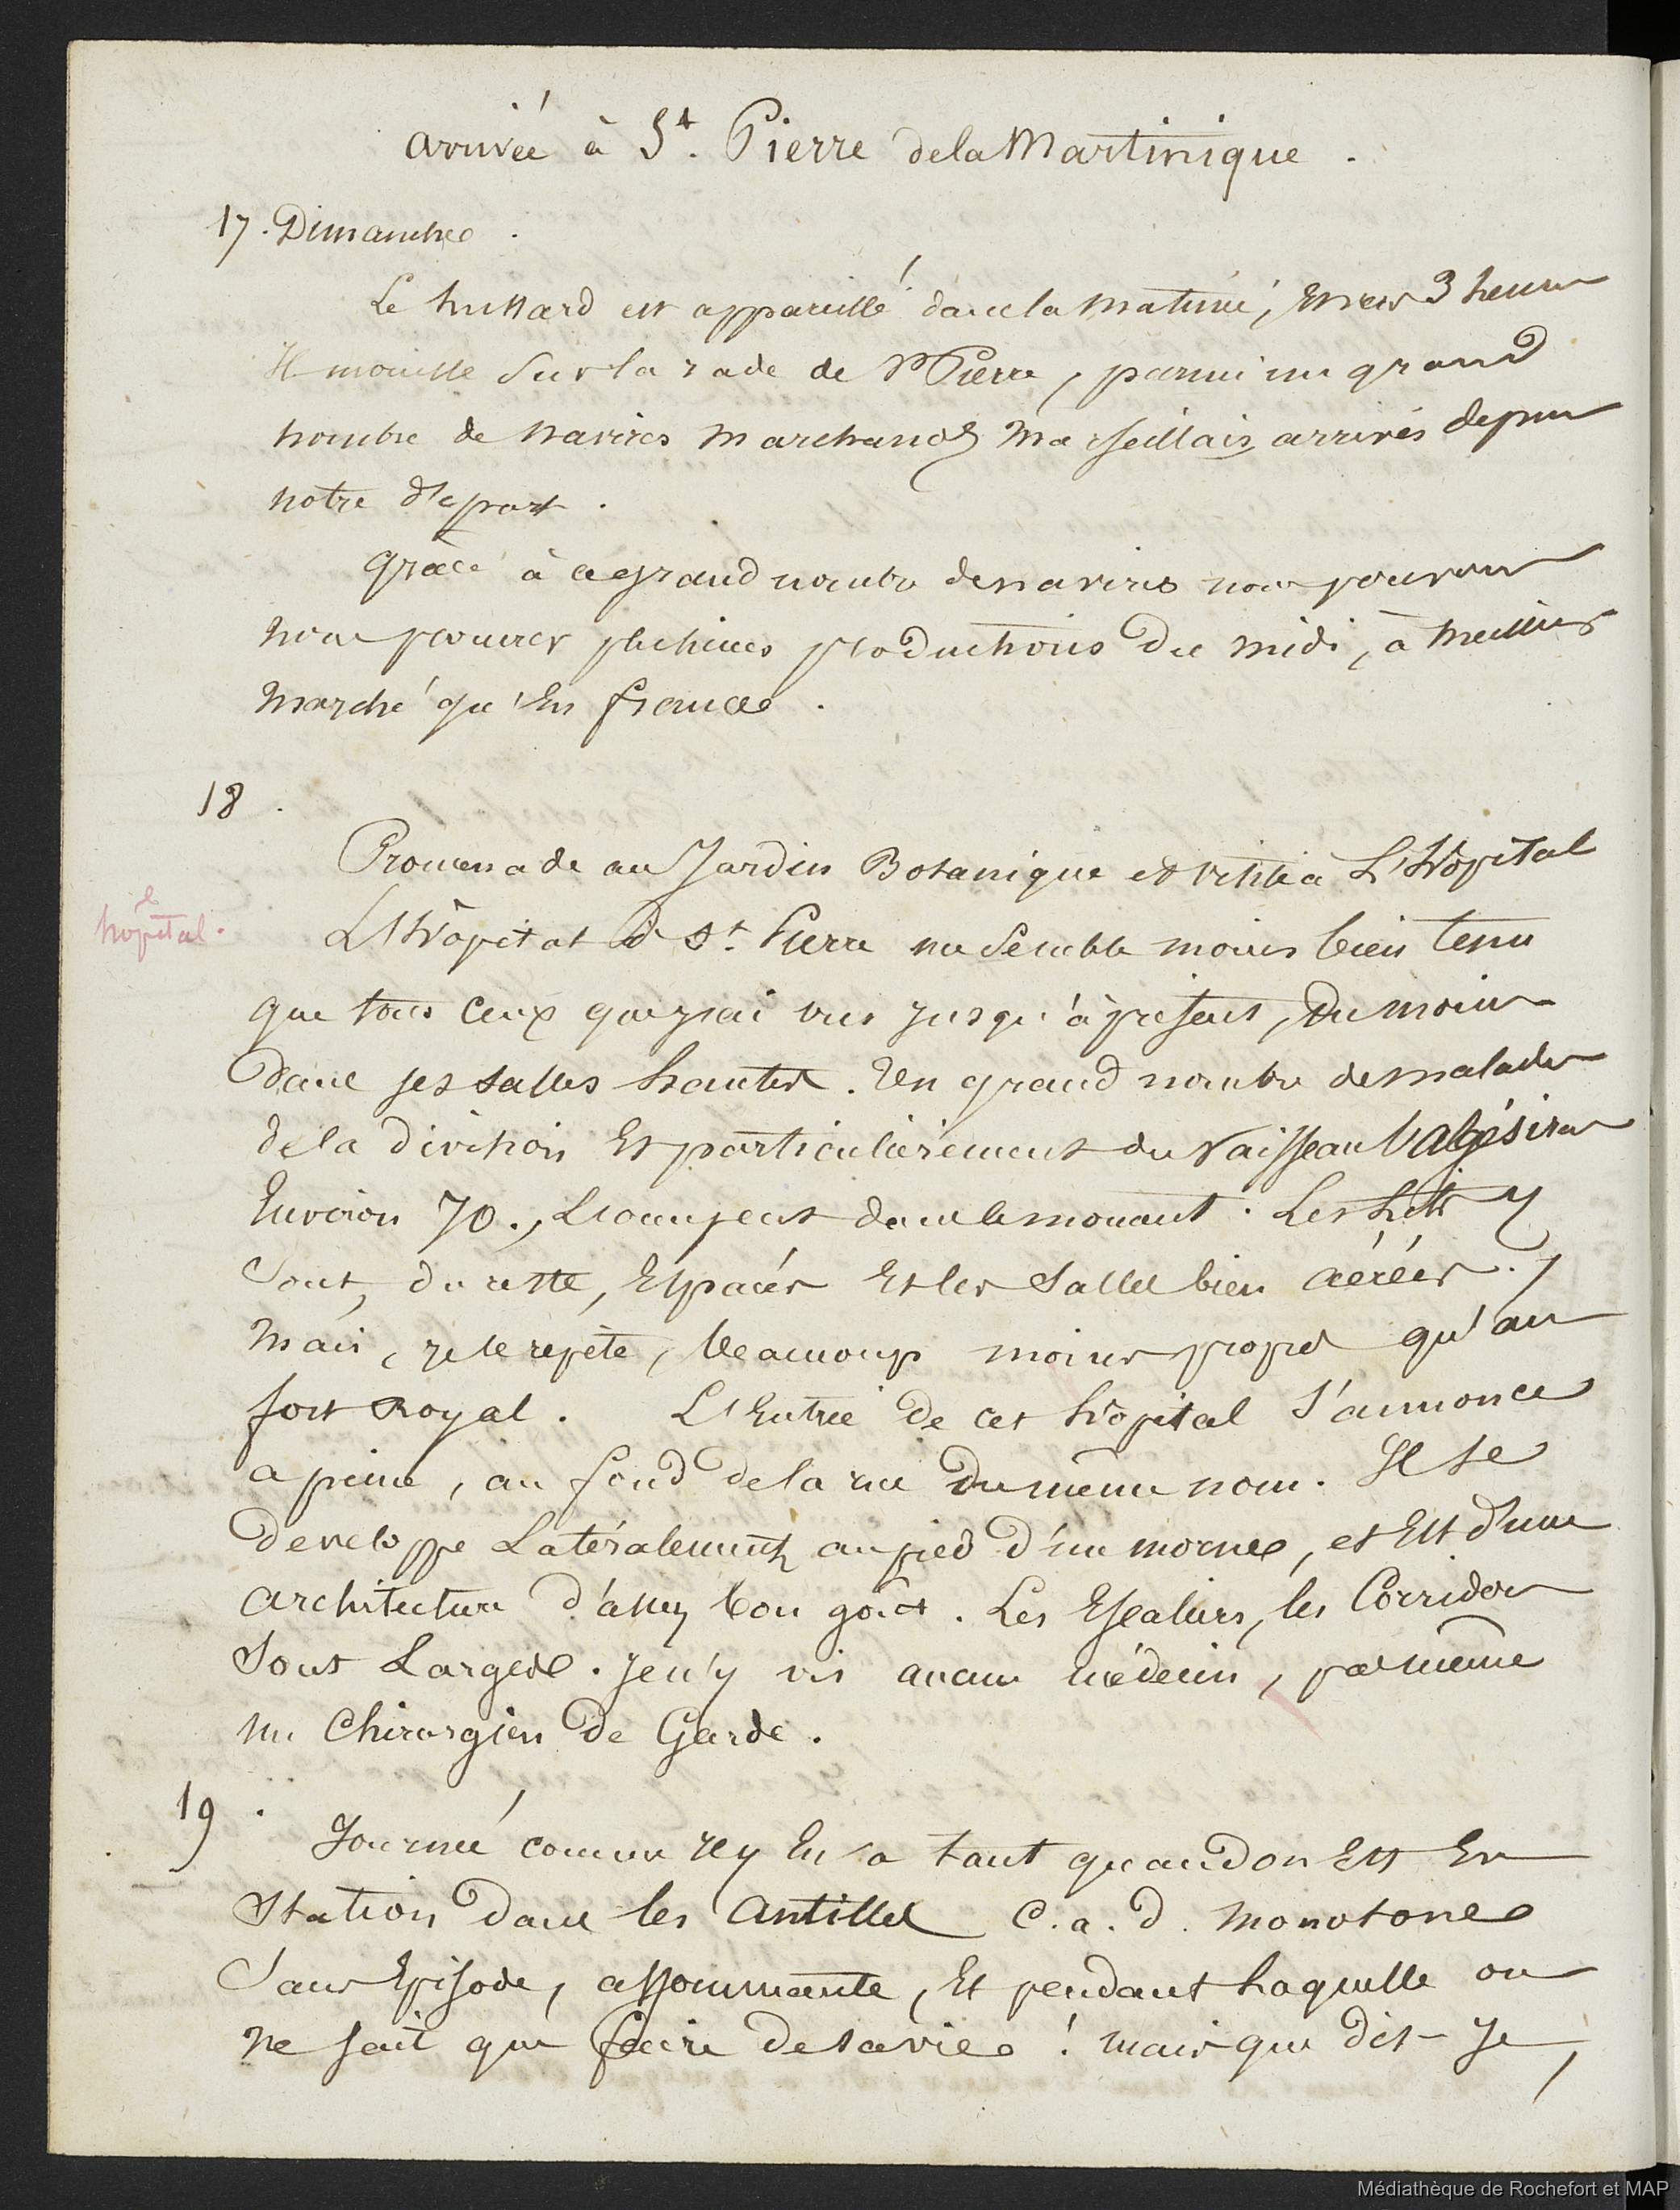 arrivée à St. Pierre de la Martinique.
17. Dimanche.
Le hussard est appareillé dans la matinée, Et vers 3 heures
Il mouille sur la rade de St Pierre, parmi un grand
nombre de navires marchands marseillais arrivés depuis
notre départ.
Grâce à ce grand nombre de navires nous pouvons
nous procurer plusieurs productions du midi, à meilleur
marché qu'En france.
18.
Promenade au Jardin Botanique et visite à L'hôpital
hôpital.
L'hôpital de St. Pierre me semble moins bien tenu
que tous ceux que j'ai vus jusqu'à présent, du moins
dans ses salles hautes. Un grand nombre de malades
de la division Et particulièrement du Vaisseau l'algésiras
Environ 70., L'occupent dans le moment. Les Lits y
sont, du reste, Espacés Et les salles bien aérées.
mais, je le repète, beaucoup moins propres qu'au
fort Royal. L'Entrée de cet hôpital s'annonce
a peine, au fond de la rue du même nom. Il se
developpe Latéralement au pied d'un morne, et Est d'une
architecture d'assez bon goût. Les Escaliers, les Corridors
sont Larges. Je n'y vis aucun médecin, pas même
un Chirurgien de Garde.
19.
Journée comme il y En a tant quand on Est En
Station dans les Antilles c.a.d. monotone
sans Episode, assommante, Et pendant Laquelle on
ne sait que faire de sa vie ! mais que dis-je,
Médiathèque de Rochefort et MAP